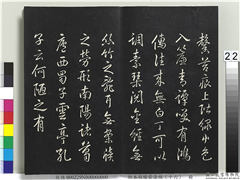 馨苔痕上階綠草色
入簾青談笑有鴻
儒往來無白丁可以
調素琴閱金經無
絲竹之亂耳無案牘
之勞形南陽諸葛
廬西蜀子雲亭孔
子云何陋之有
22